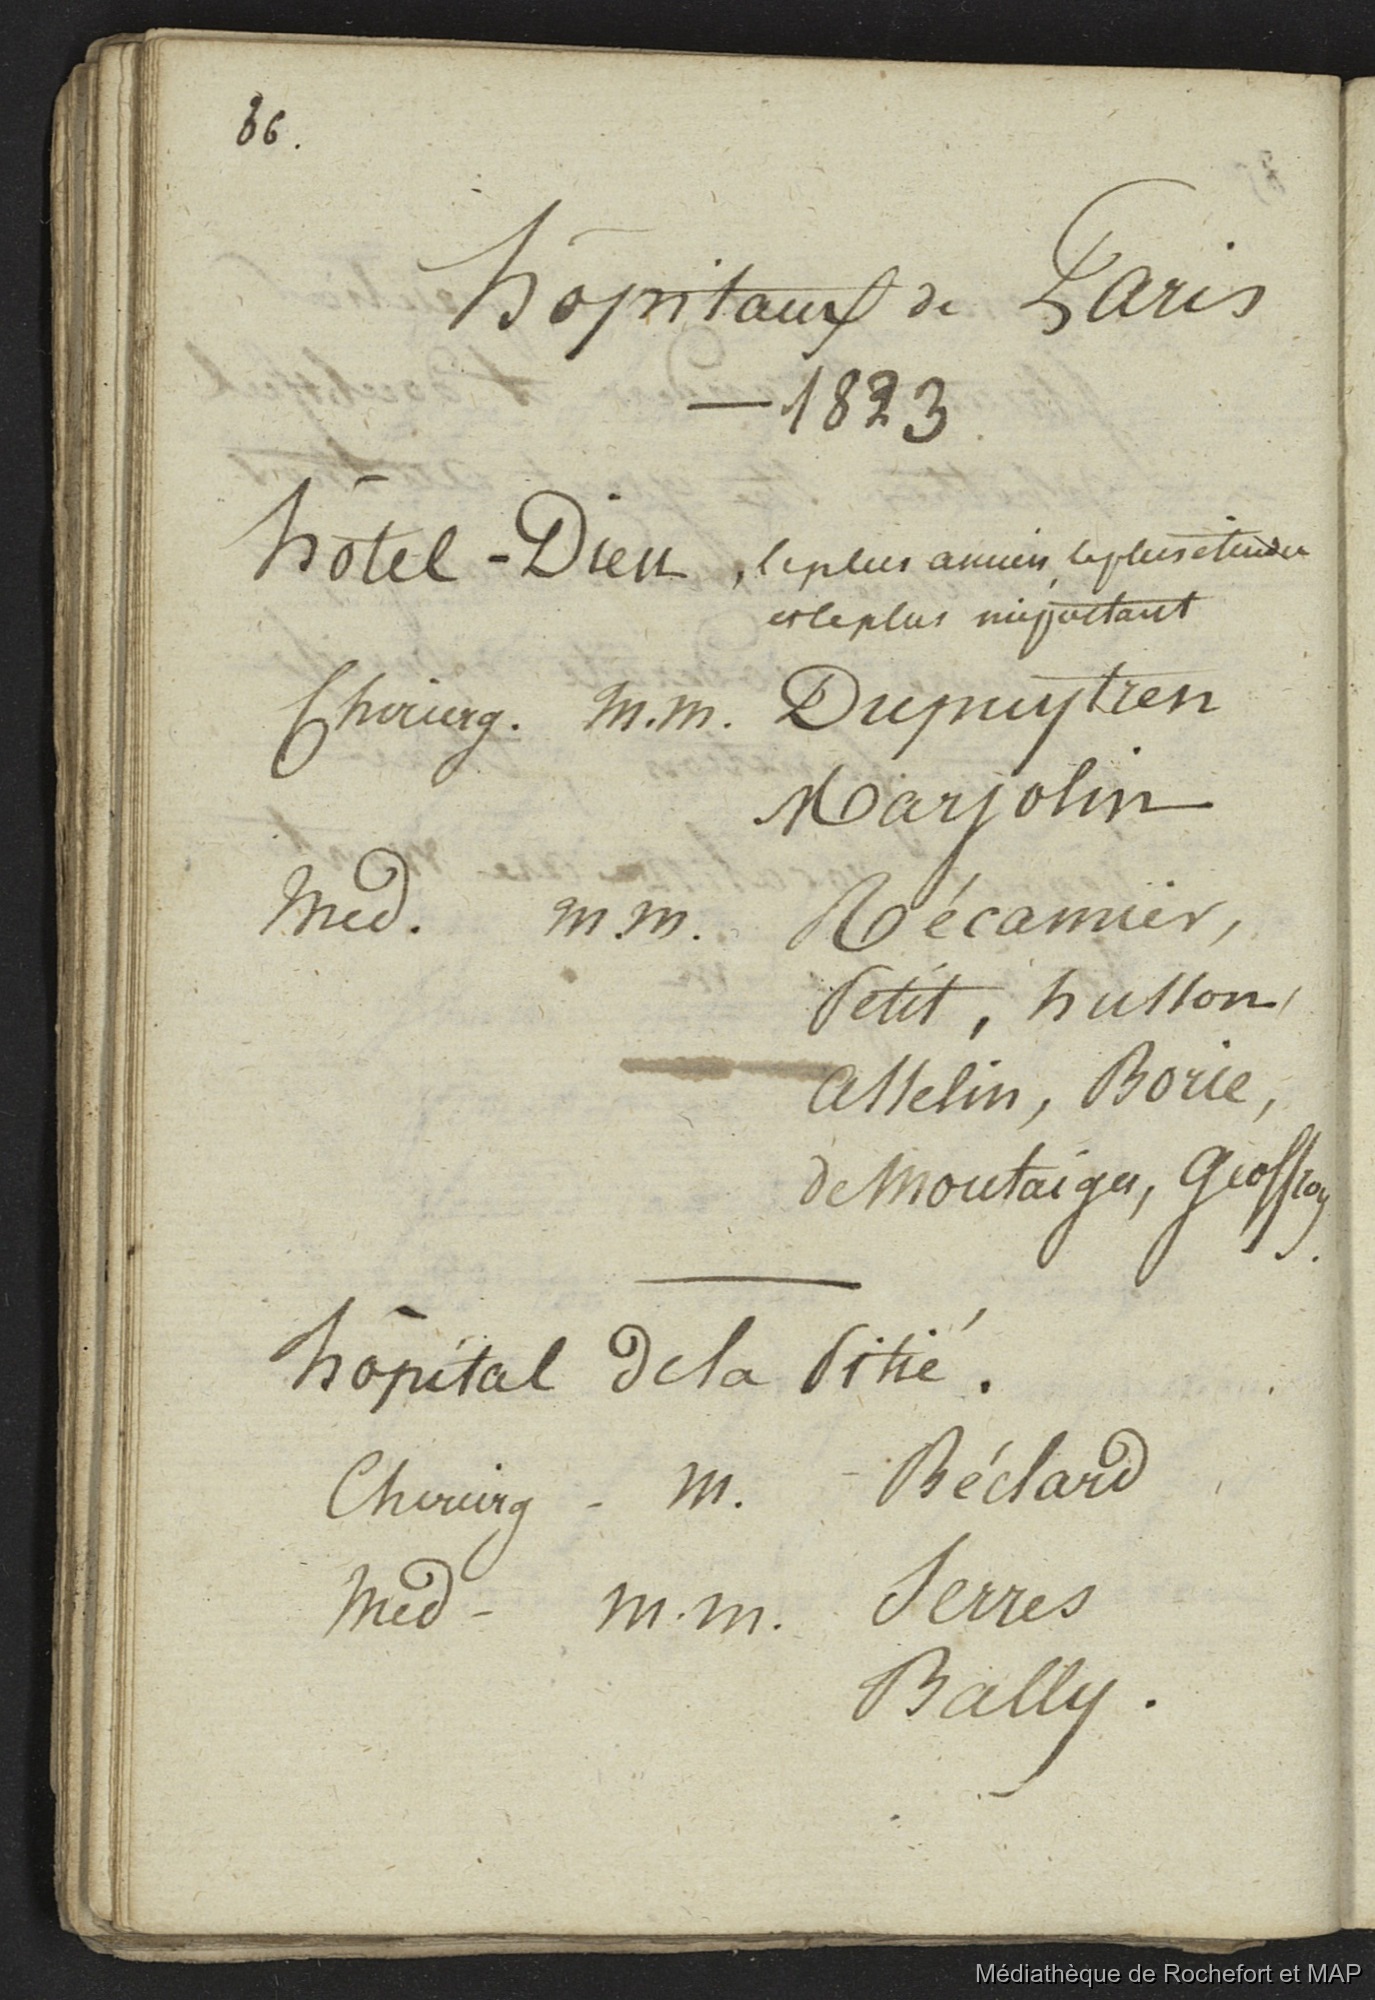 86.
hôpitaux de Paris
— 1823
hôtel-Dieu, le plus ancien, le plus étendu
et le plus important
Chirurg. m.m. Dupuytren
Marjolin
Med. m.m. Récamier,
Petit, husson,
asselin, Borie,
de Montaigu, Geoffroy.
hôpital de la Pitié.
Chirurg - m. Béclard
Med - m.m. Serres
Bally.
Médiathèque de Rochefort et MAP